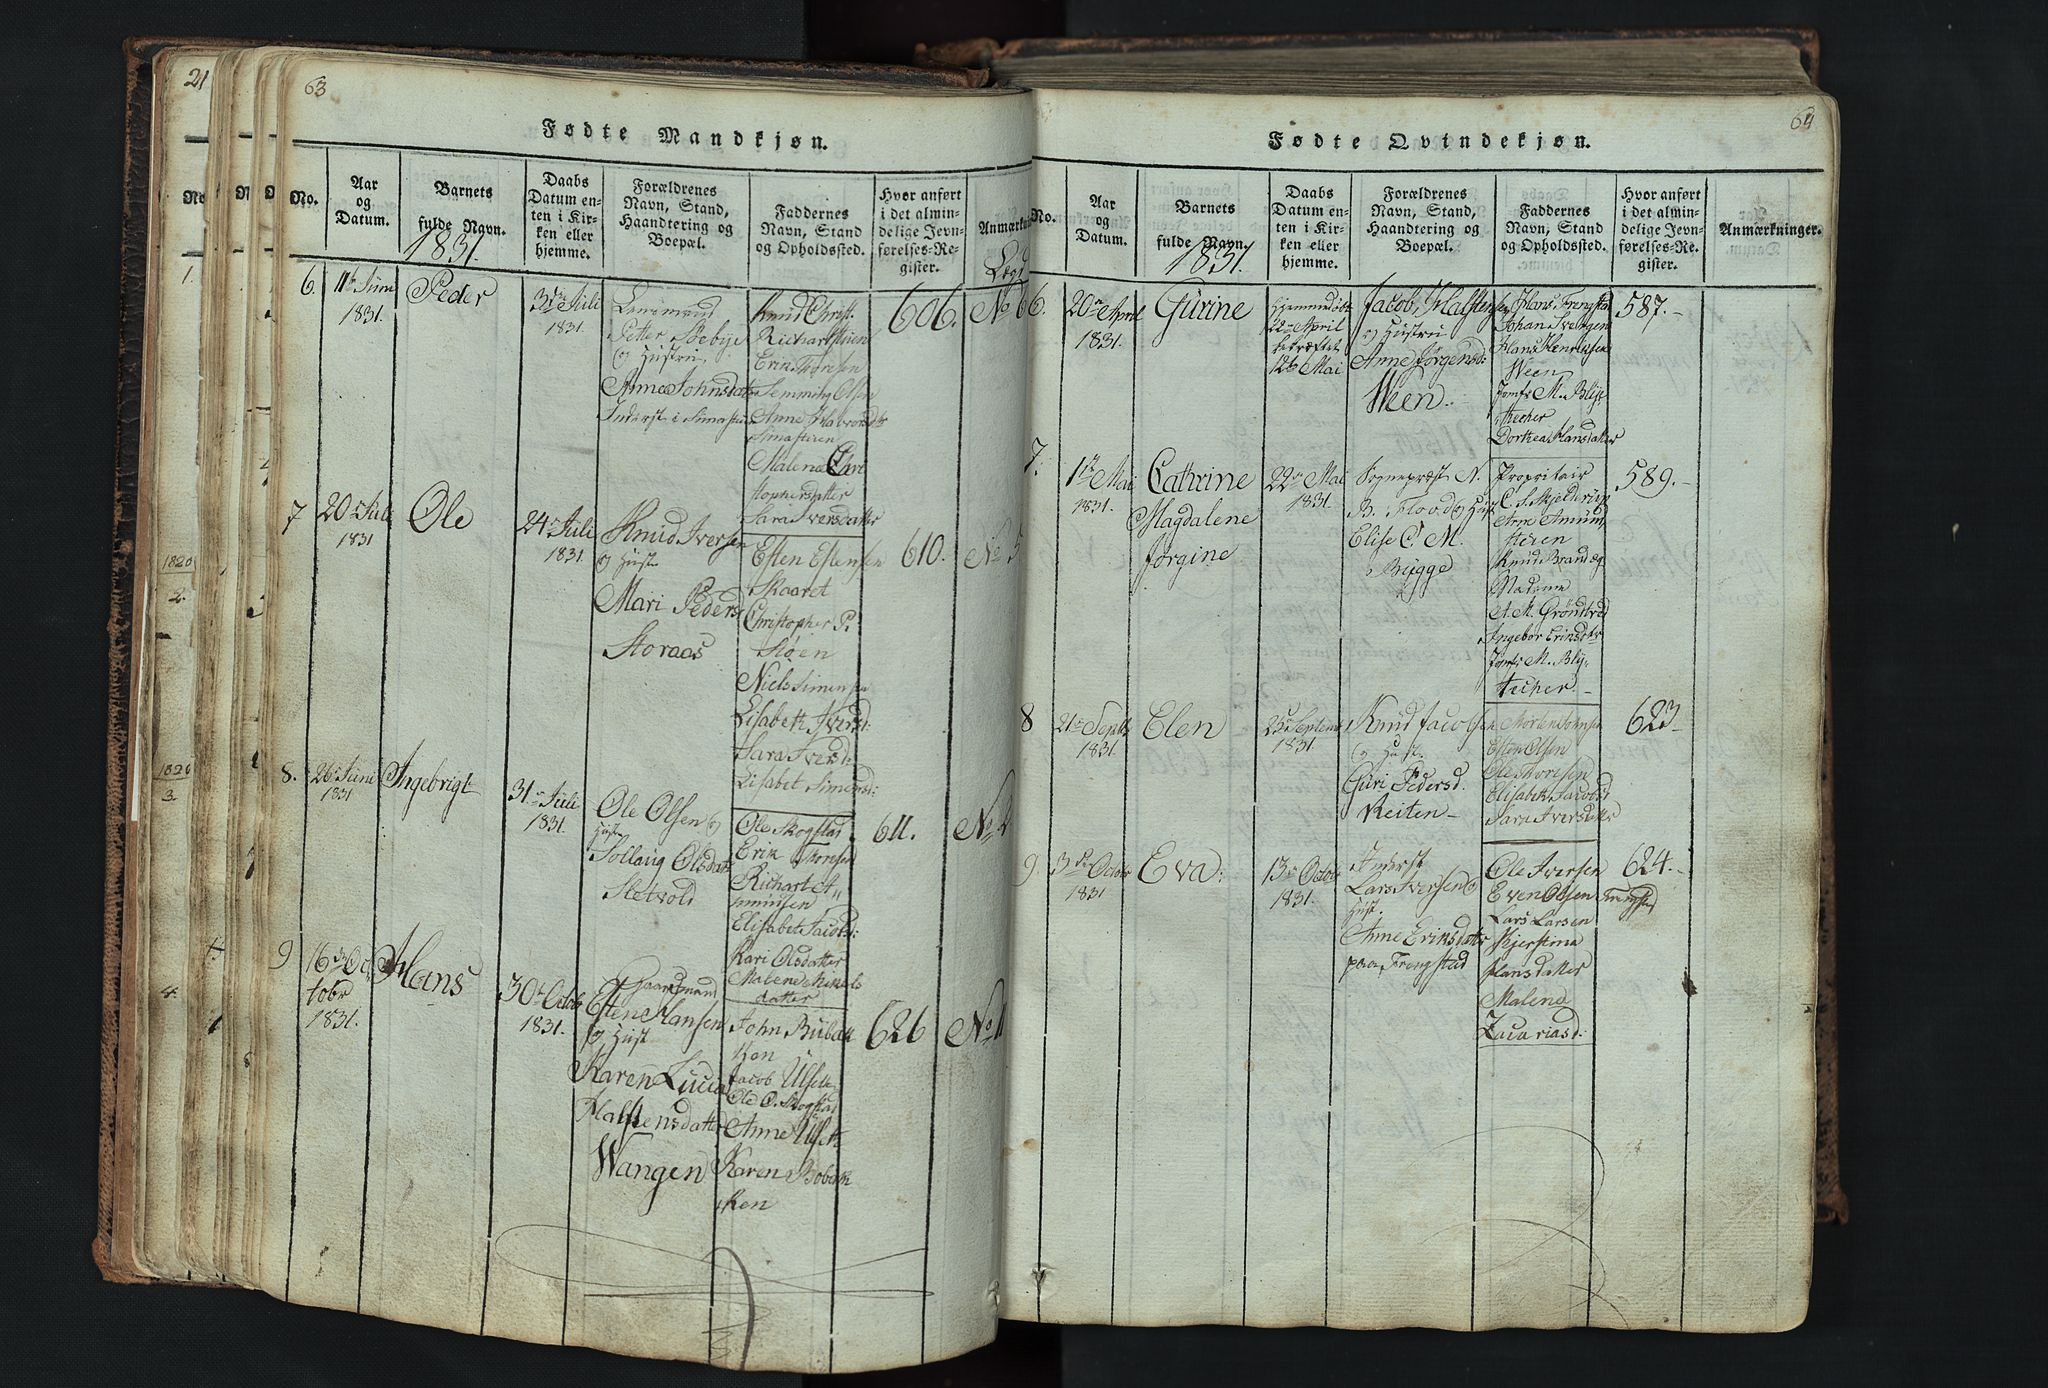 21
63
Fødte Mandkjøn.
No.
Aar
og
Datum.
Barnets
fulde Navn.
1831.
Daabs
Datum en-
ten i Kir-
ken eller
hjemme.
Forældrenes
Navn, Stand,
Haandtering og
Boepæl.
Faddernes
Navn, Stand
og Opholdssted.
Hvor anført
i det almin-
delige Jevn-
førelses-Re-
gister.
6.
1831.
Peder
Juli
1831.
og Hustru
Anne Johnsdatt
Erik Thoresen
Semming Olsen
Malene Chri
stophersdatter
Sara Iversdatter
606.
No 6
7
20 Juli
1831
Ole
24 Juli
1831.
Knud Iversen
og Hust
Mari Peders
Storaas
Esten Estensen
Skaaret
Christopher P.
Støen
Niels Simensen
Lisabeth Iversd:
Sara Iversd:
Lisabet Simensd:
610.
No 5
8.
26 Juni
1831
Ingebrigt
31 Juli
1831.
Ole Olsen og
Hust
Sollaug Olsdat
Sletvold
Ole Skogstad
Erik Thoresen
Richart A-
Elisabet Jacobsd:
Kari Olsdatter
Malene Mikels
datter
611.
No 2
9
16 Oc
tobr
1831.
Hans
30 Octob
1831.
Huusmand
Esten Hansen
og Hust
Karen Lucia
Halstensdatter
Wangen
John Bubak
ken
Jacob Ulset
Ole O. Skogstad
Anne Ulset
Karen Bobak
ken
626
No 1
64
Fødte Qvindekjøn.
No.
Aar
og
Datum.
Barnets
fulde Navn.
1831.
Daabs
Datum en-
ten i Kir-
ken eller
hjemme.
Forældrenes
Navn, Stand,
Haandtering og
Boepæl.
Faddernes
Navn, Stand
og Opholdssted.
Hvor anført
i det almin-
delige Jevn-
førelses-Re-
gister.
Anmærkninger.
6.
20 April
1831.
Gurine
Hjemmedøbt
22 April
12 Mai
Jacob Halstensen
og Hustru
Anne Jørgensd:
Ween.
Hans Frengstad
Johan Svergen
Hans Henriksen
Ween
Jomfr M. Bly-
thecher
Dorthea Hansdatter
587.-
7.
1 Mai
1831.
Cathrine
Magdalene
Jørgine
22 Mai
1831.
Sognepræst N.
B. Flood og Hust
Elise C. M.
Brygge
Propritair
C. S. Skjelderup
Knud Brandæg
Madame
A. M. Grøndtvd
Jomfr M. Bly-
thecher.-
589.-
8
21 Septb
1831.
Elen
25 Septem
1831.
Knud Jacobsen
og Hust.
Guri Pedersd.
Reiten-
Morten Johnsen
Esten Olsen
Ole Thoresen
Elisabeth Jacobsd
Sara Iversdatter
623-
9
3 October
1831
Eva:
13 Octob
1831.
Inderst
Lars Iversen og
Hust.
Anne Eriksdatter
paa Frengstad
Ole Iversen
Even Olsen Frengstad
Lars Larsen
Kjerstina
Hansdatter
Malena
Zacariasd:
624.-